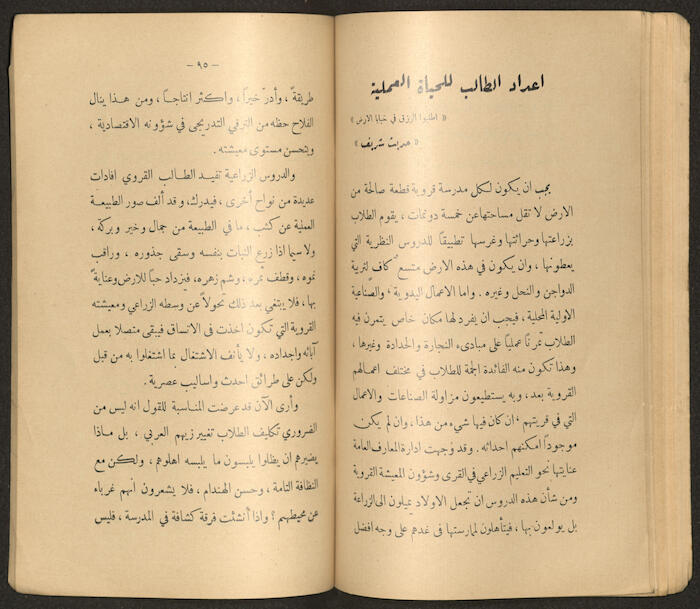 اعداد الطالب للحياة العملية
« اطلبوا الرزق في خبايا الارض »
« حديث شريف »
يجب ان يكون لكل مدرسة قروية قطعة صالحة من
الارض لا تقل مساحتها عن خمسة دونمات ، يقوم الطلاب
بزراعتها وحراثتها وغرسها تطبيقاً للدروس النظرية التي
يعطونها ، وان يكون في هذه الارض متسع كاف لتربية
الدواجن والنحل وغيره . واما الاعمال اليدوية ، والصناعية
الاولية المحلية ، فيجب ان يفرد لها مكان خاص يتمرن فيه
الطلاب تمرناً عملياً على مبادىء النجارة والحدادة وغيرها ،
وهذا تكون منه الفائدة الجمة للطلاب في مختلف اعمالهم
القروية بعد ، وبه يستطيعون مزاولة الصناعات والاعمال
التي في قريتهم ، ان كان فيها شيء من هذا ، وان لم يكن
موجوداً امكنهم احداثه . وقد وُجهت ادارة المعارف العامة
عنايتها نحو التعليم الزراعي في القرى وشؤون المعيشة القروية
ومن شأن هذه الدروس ان تجعل الاولاد يميلون الى الزراعة
بل يولعون بها ، فيتأهلون لممارستها في غدهم على وجه افضل
— ٩٥ —
طريقةً ، وأدرّ خيراً ، واكثر انتاجاً ، ومن هذا ينال
الفلاح حظه من الترقي التدريجي في شؤونه الاقتصادية ،
ويتحسن مستوى معيشته .
والدروس الزراعية تفيد الطالب القروي افادات
عديدة من نواح أخرى ، فيدرك ، وقد ألف صور الطبيعة
العملية عن كثب ، ما في الطبيعة من جمال وخير وبركة ،
ولا سيما اذا زرع النبات بنفسه وسقى جذوره ، وراقب
نموه ، وقطف ثمره ، وشم زهره ، فيزداد حباً للارض وعنايةً
بها ، فلا يبتغي بعد ذلك تحولاً عن وسطه الزراعي ومعيشته
القروية التي تكون اخذت في الاتساق فيبقى متصلا بعمل
آبائه واجداده ، ولا يأنف الاشتغال بما اشتغلوا به من قبل
ولكن على طرائق احدث واساليب عصرية .
وأرى الآن قد عرضت المناسبة للقول انه ليس من
الضروري تكليف الطلاب تغيير زيهم العربي ، بل ماذا
يضيرهم ان يظلوا يلبسون ما يلبسه اهلوهم ، ولكن مع
النظافة التامة ، وحسن الهندام ، فلا يشعرون انهم غرباء
عن محيطهم ؟ واذا أنشئت فرقة كشافة في المدرسة ، فليس